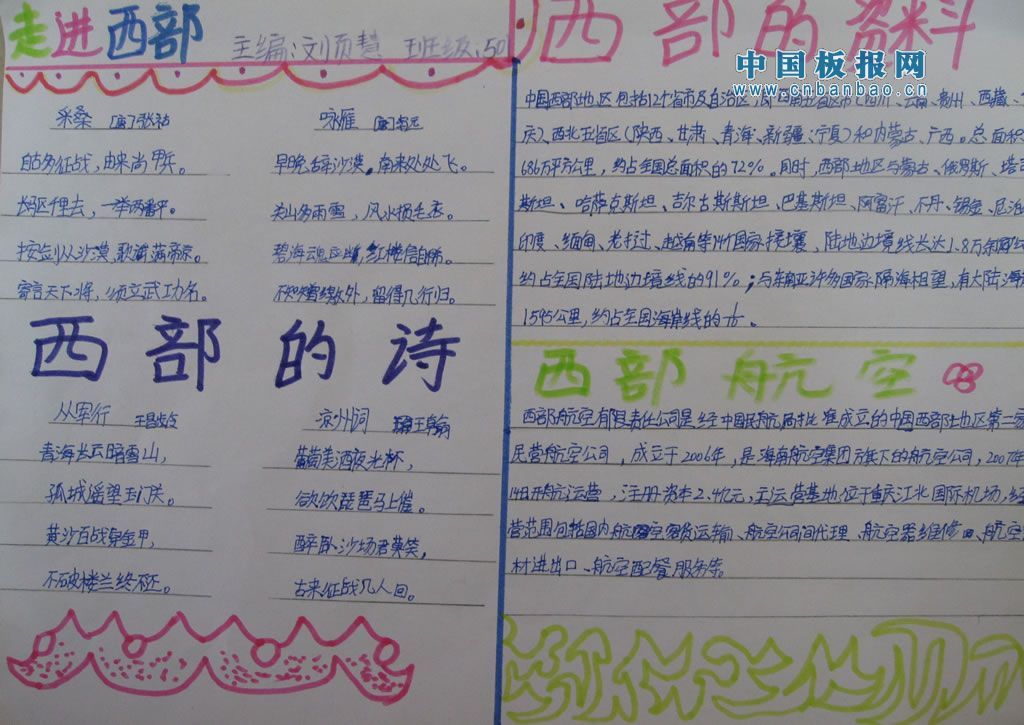 走进西部
主编:刘页慧 班级:50
采桑
自古多征战，由来尚甲兵。
长驱千里去，一举两番平。
按剑从沙漠,歌谣满帝京。
寄言天下将，须立武功名。
咏雁
早晚辞沙漠，南来处处飞。
关山多雨雪，风水损毛衣。
碧海魂应断,红楼信自稀。
不知矰缴外，留得几行归。
西部的诗
从军行 王昌龄
青海长云暗雪山，
孤城遥望玉门关。
黄沙百战穿金甲，
不破楼兰终不还。
凉州词 王翰
葡萄美酒夜光杯，
欲饮琵琶马上催。
醉卧沙场君莫笑，
古来征战几人回。
西部的资料
中国板报网
www.cnbanbao.cn
中国西部地区包括12个省市及自治区,即西南五省区市(四川、云南、贵州、西藏、
庆)、西北五省区(陕西、甘肃、青海、新疆、宁夏)和内蒙古、广西。总面积
686万平方公里，约占全国总面积的72%。同时，西部地区与蒙古、俄罗斯、塔吉
斯坦、哈萨克斯坦、吉尔吉斯斯坦、巴基斯坦、阿富汗、不丹、锡金、尼泊
印度、缅甸、老挝、越南等14个国家接壤，陆地边境线长达1.8万余
约占全国陆地边境线的91%；与东南亚许多国家隔海相望，有大陆海
1595公里，约占全国海岸线的1/10。
西部航空
西部航空有限责任公司是经中国民航局批准成立的中国西部地区第一家
民营航空公司，成立于2006年，是海南航空集团旗下的航空公司，2007年
14日开航运营，注册资本2.4亿元，主运营基地位于重庆江北国际机场，经
营范围包括国内航空客货运输、航空公司间代理、航空器维修、航空
材进出口、航空配餐服务等。